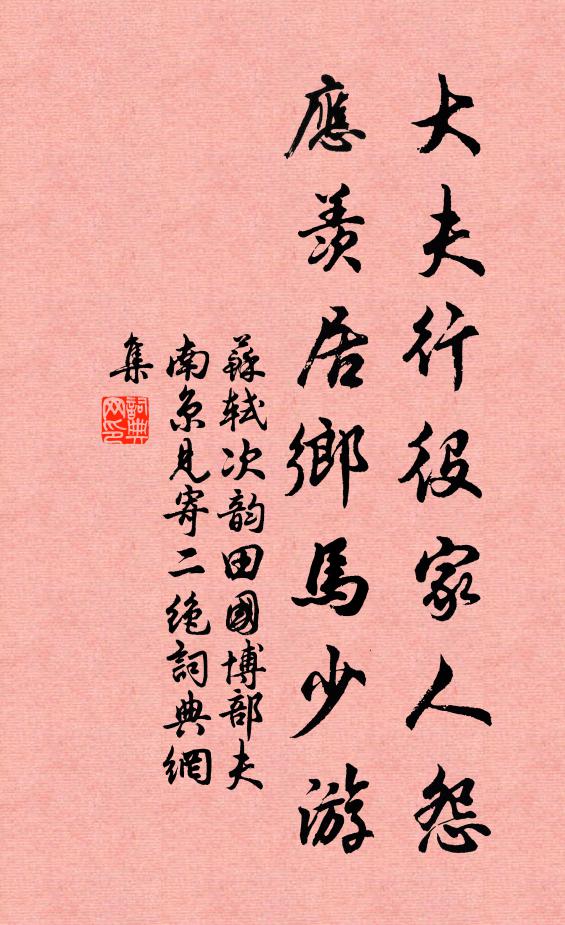 大夫行役家人怨
應羨居鄉馬少游
蘇軾次韵田國博部夫
南京見寄二絶詞典網
集
詞典
网印